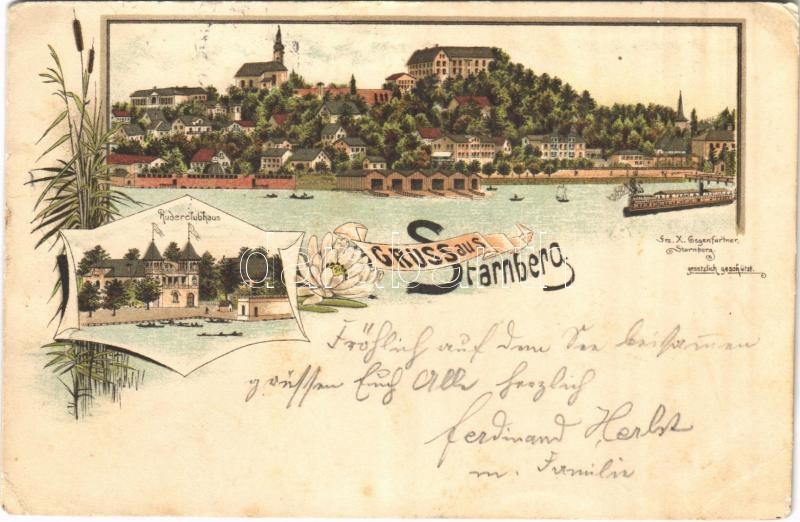 Ruderclubhaus
GRUSS aus
Starnberg.
Frz. X. Gegenfurtner,
Starnberg.
gesetzlich geschützt.
Fröhlich auf dem See beisammen
grüssen Euch Alle herzlich
Ferdinand Herbst
m. Familie
darabanth.com